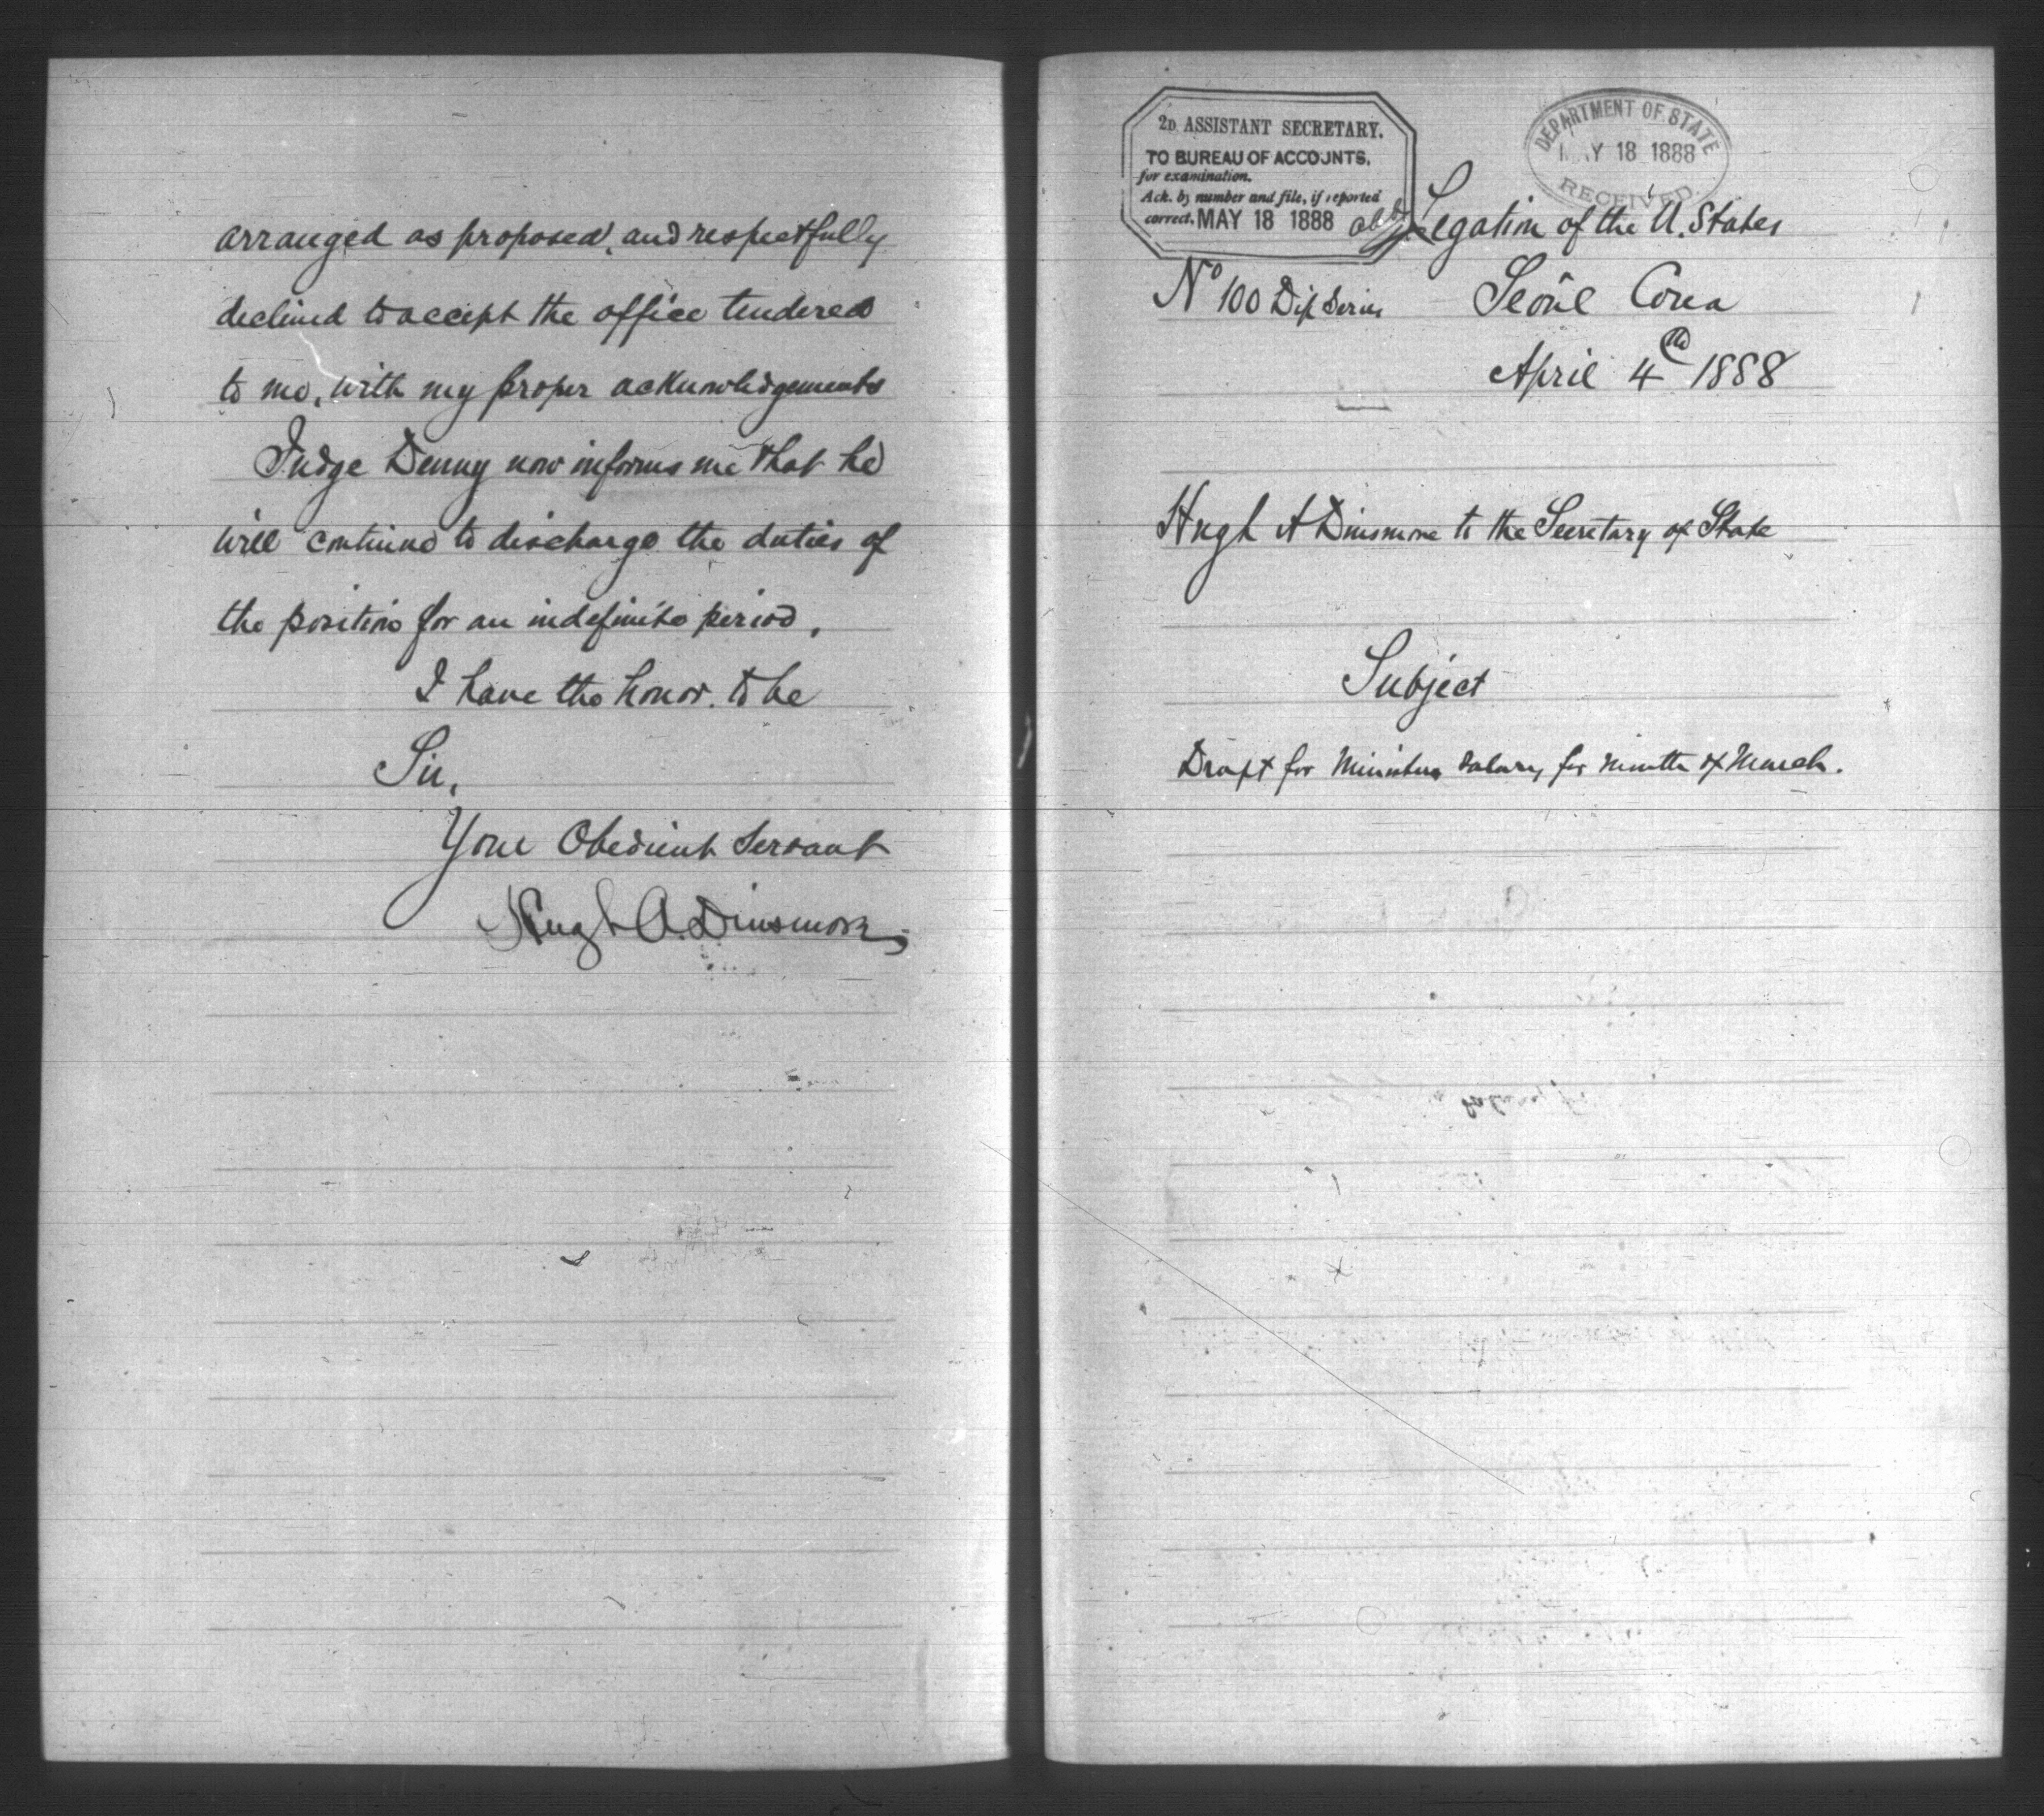 arranged as proposed, and respectfully
declined to accept the office tendered
to me, with my proper acknowledgements
Judge Denny now informs me that he
will continue to discharge the duties of
the position for an indefinite period.
I have the honor to be
Sir,
Your Obedient Servant
Hugh A. Dinsmore
2D ASSISTANT SECRETARY.
TO BUREAU OF ACCOUNTS,
for examination.
Ack. by number and file, if reported
correct. MAY 18 1888
DEPARTMENT OF STATE
MAY 18 1888
RECEIVED.
Legation of the U. States
No 100 Dip Series Seoul Corea
April 4th 1888
Hugh A Dinsmore to the Secretary of State
Subject
Draft for Ministers salary for month of March.